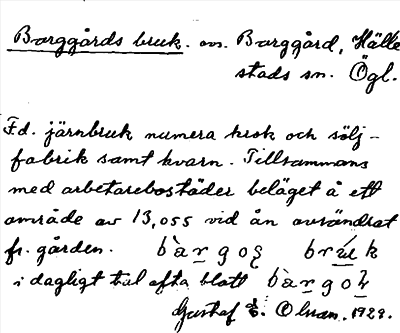 Borggårds bruk. om. Borggård, Hälle
stads sn. Ögl.
Fd. järnbruk numera krok och sölj-
fabrik samt kvarn. Tillsammans
med arbetarebostäder beläget å ett
område av 13,055 vid ån avsöndrat
fr. gården.
i dagligt tal ofta blott
Gustaf E. Olsson. 1929.